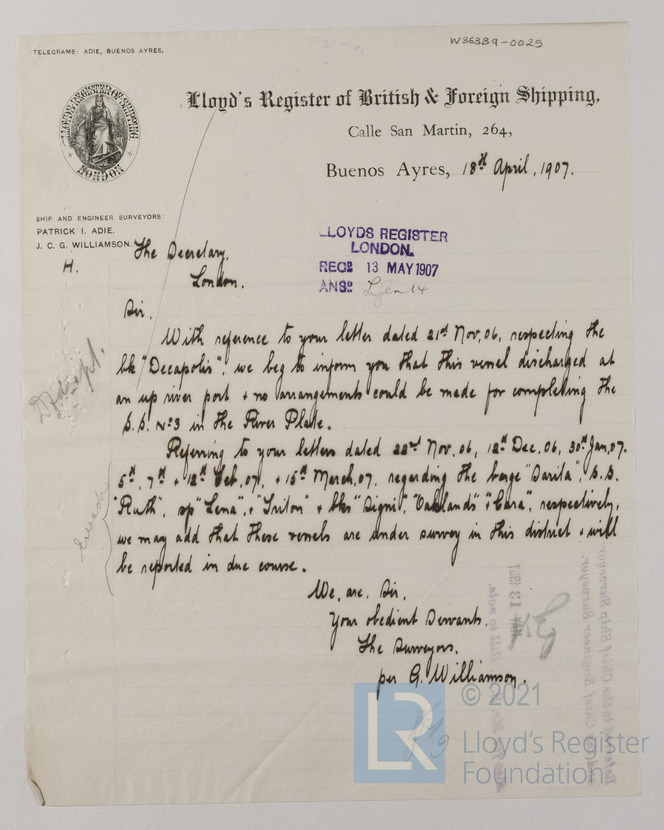 W363B9-0029
TELEGRAMS: ADIE, BUENOS AYRES.
LLOYD'S REGISTER OF SHIPPING
LONDON
Lloyd's Register of British & Foreign Shipping,
Calle San Martin, 264,
Buenos Ayres, 18th April, 1907.
SHIP AND ENGINEER SURVEYORS:
PATRICK I. ADIE.
J. C. G. WILLIAMSON.
H.
The Secretary.
London.
LLOYDS REGISTER
LONDON.
RECD 13 MAY 1907
ANSD
Sir.
With reference to your letter dated 21st Nov, 06, respecting the
bk "Decapolis", we beg to inform you that this vessel discharged at
an up river port & no arrangements could be made for completing the
S.S. No3 in the River Plate.
Referring to your letters dated 22nd Nov. 06, 12th Dec. 06, 30th Jan, 07.
5th, 7th & 12th Feb, 07, & 15th March, 07. regarding the barge "Sarita", S.S.
"Ruth", sp "Lena", & "Triton" & bks "Signe", "Oaklands" & "Cara", respectively,
we may add that these vessels are under survey in this district & will
be reported in due course.
We, are, Sir.
Your obedient Servants.
The Surveyors.
per G. Williamson.
13 1907
LR
© 2021
Lloyd's Register
Foundation